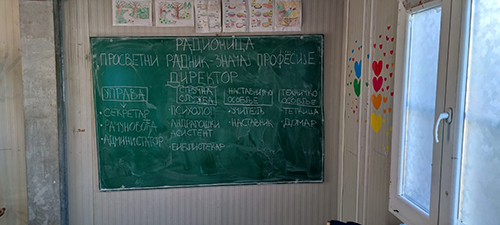 РАДИОНИЦА
ПРОСВЕТНИ РАДНИК-ЗНАЧАЈ ПРОФЕСИЈЕ
ДИРЕКТОР
УПРАВА
•СЕКРЕТАР
•РАЧУНОВОЂА
•АДМИНИСТРАТОР
СТРУЧНА
СЛУЖБА
•ПСИХОЛОГ
АСИСТЕНТ
•БИБЛИОТЕКАР
НАСТАВНИЧКО
ОСОБЉЕ
•УЧИТЕЉ
•НАСТАВНИК
ТЕХНИЧКО
ОСОБЉЕ
•ТЕТКИЦА
•ДОМАР